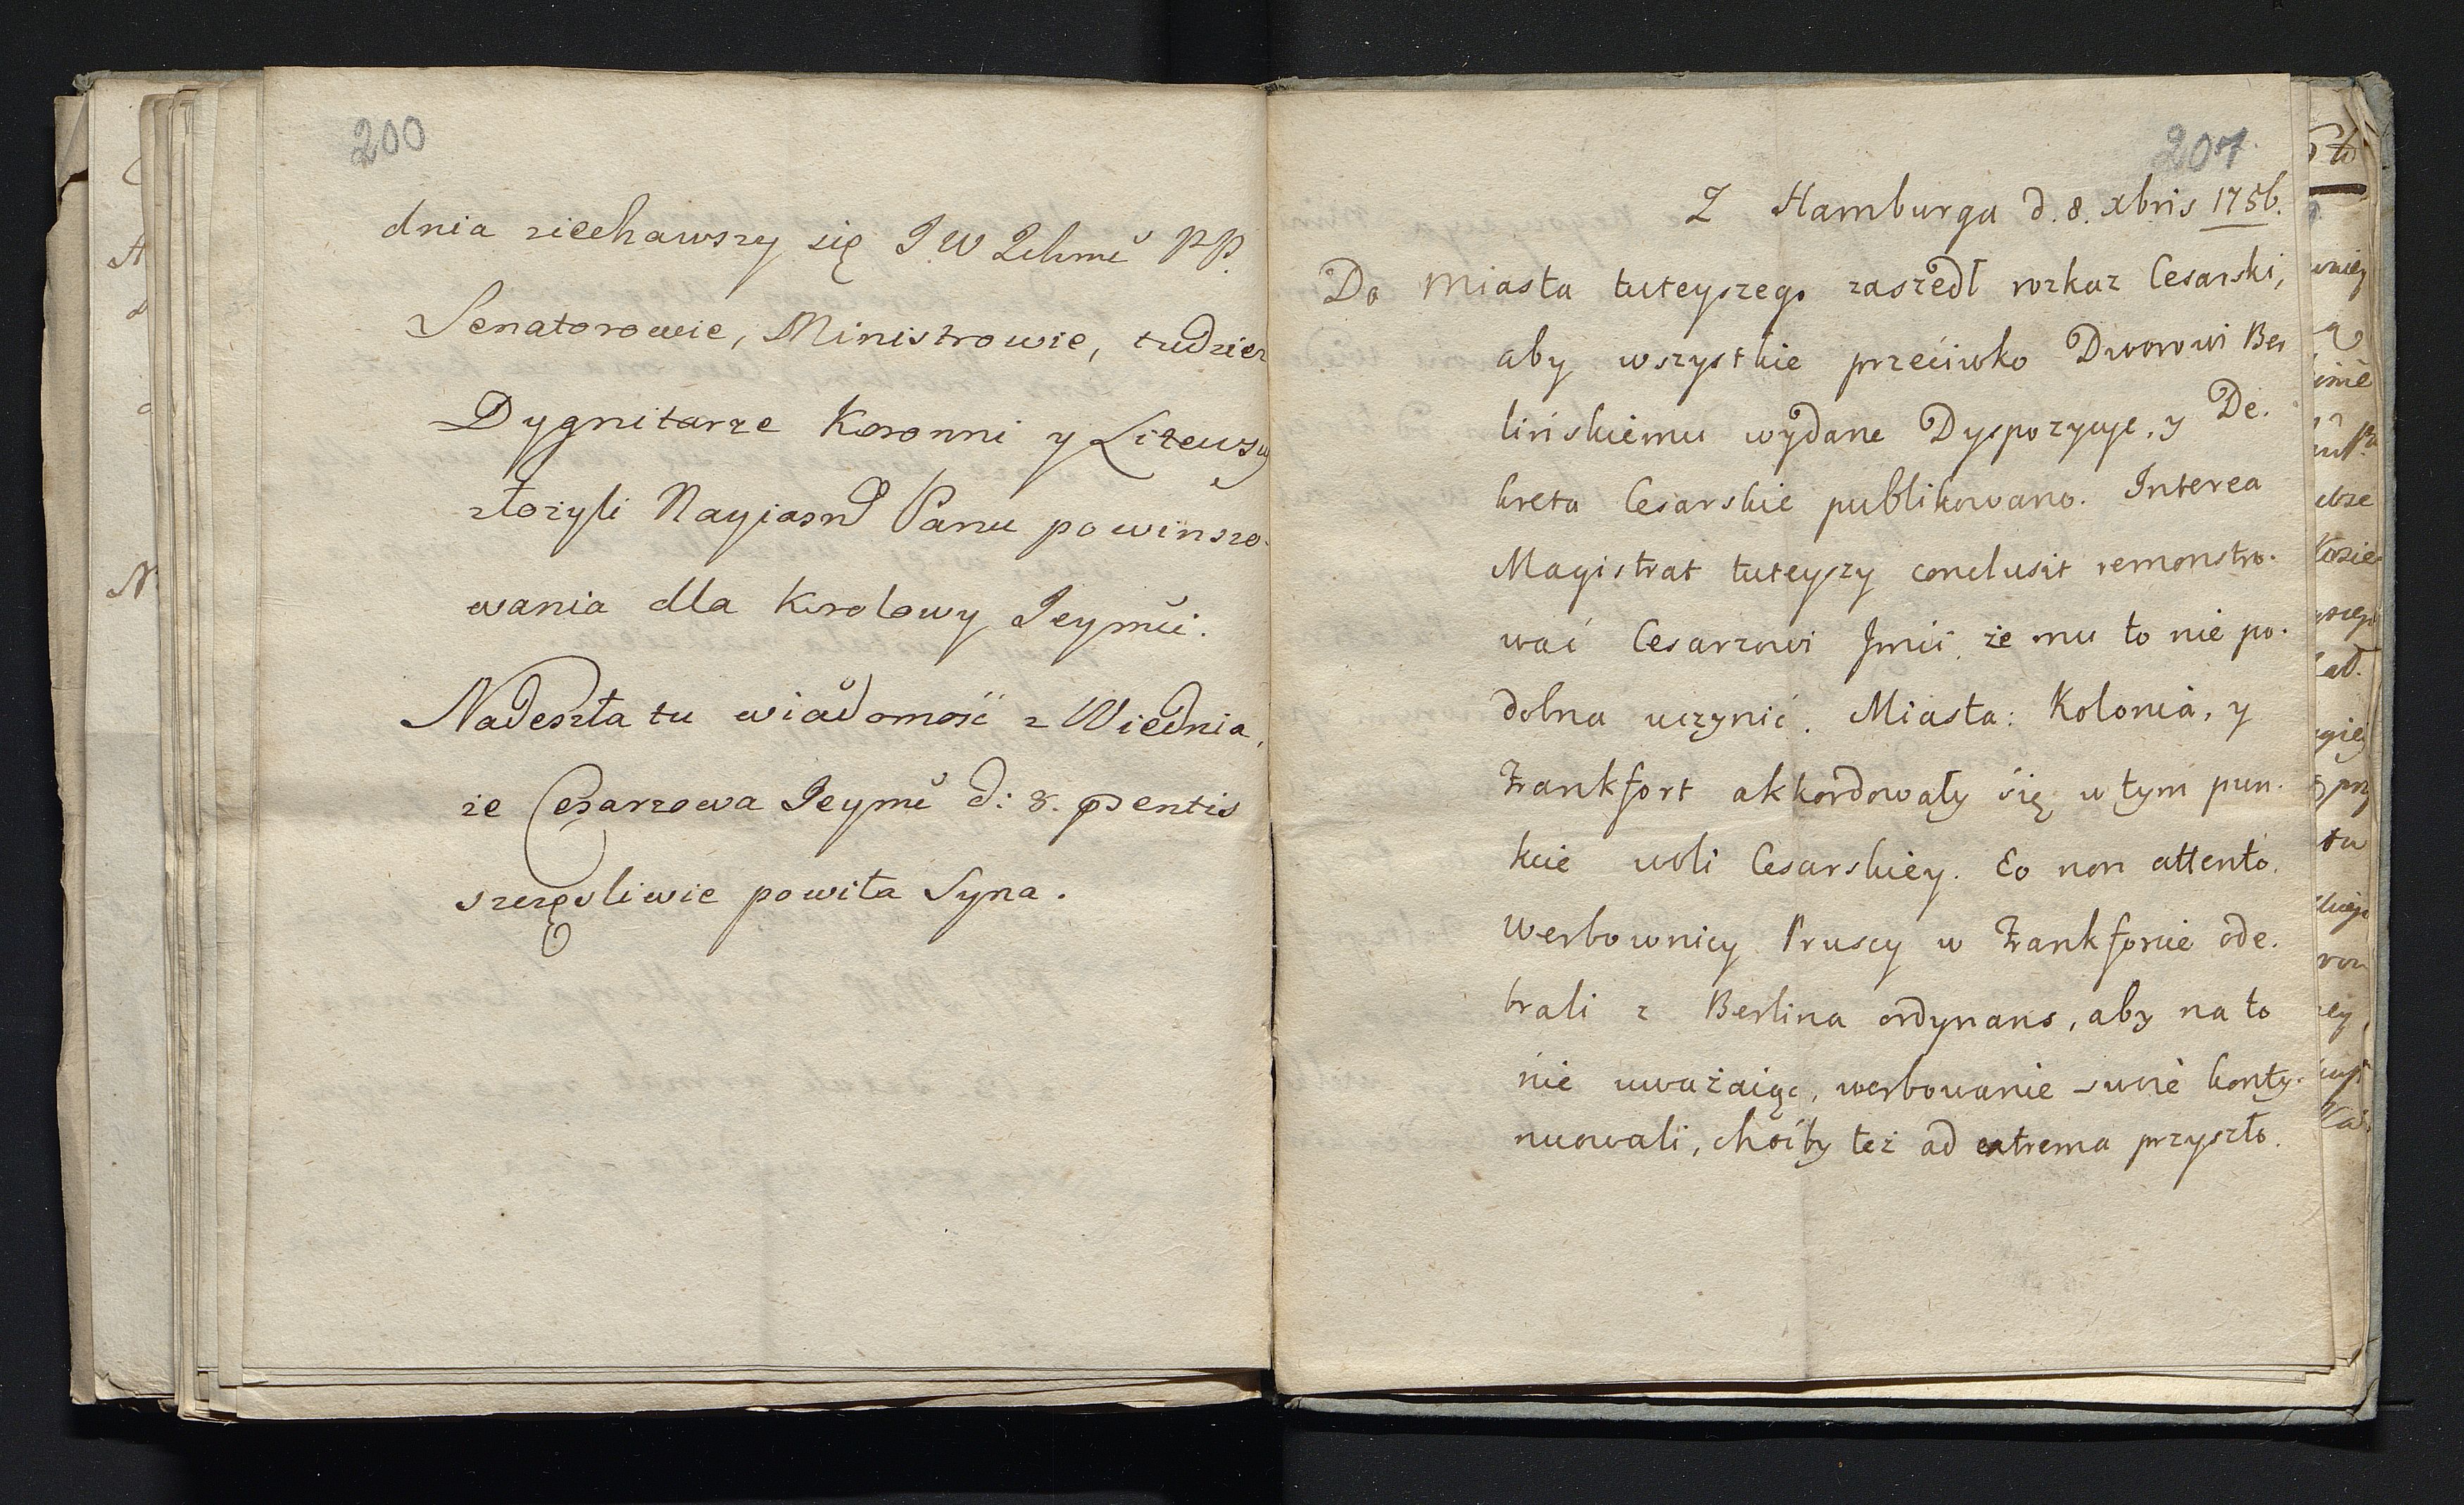 200
dnia ziechawszy się J W Ichmć PP.
Senatorowie, Ministrowie, tudziez
Dygnitarze Koronni y Litewscy
złożyli Nayjasnɂ Panu powinszo-
wania dla Krolowy Jeymći.
Nadeszła tu wiadomość z Wiednia,
że Cesarzowa Jeymć d: 8. psentis
szczęsliwie powiła Syna.
201
Z Hamburga d. 8. xbris 1756.
Do Miasta tuteyszego zaszedł rozkaz Cesarski,
aby wszystkie przećiwko Dworowi Ber
lińskiemu wydane Dyspozycye, y De-
kreta Cesarskie publikowano. Interea
Magistrat tuteyszy conclusit remonstro-
wać Cesarzowi Jmći, że mu to nie po-
dobna uczynić. Miasta: Kolonia, y
Frankfort akkordowały się w tym pun-
kcie woli Cesarskiey. Eo non attento,
Werbownicy Pruscy w Frankforcie ode-
brali z Berlina ordynans, aby na to
nie uważaiąc, werbowanie swoie konty-
nuowali, choćby też ad extrema przyszło.